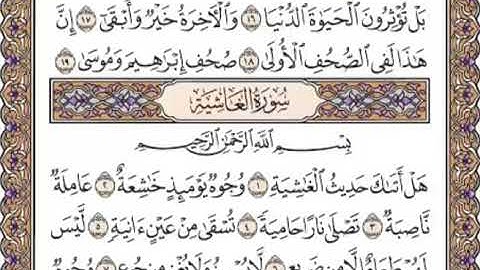 بَلْ تُؤْثِرُونَ ٱلْحَيَوٰةَ ٱلدُّنْيَا ١٦ وَٱلْءَاخِرَةُ خَيْرٌ وَأَبْقَىٰٓ ١٧ إِنَّ
هَٰذَا لَفِى ٱلصُّحُفِ ٱلْأُولَىٰ ١٨ صُحُفِ إِبْرَٰهِيمَ وَمُوسَىٰ ١٩
سُورَةُ الغَاشِيَةِ
بِسْمِ ٱللَّهِ ٱلرَّحْمَٰنِ ٱلرَّحِيمِ
هَلْ أَتَىٰكَ حَدِيثُ ٱلْغَٰشِيَةِ ١ وُجُوهٌ يَوْمَئِذٍ خَٰشِعَةٌ ٢ عَامِلَةٌ
نَّاصِبَةٌ ٣ تَصْلَىٰ نَارًا حَامِيَةً ٤ تُسْقَىٰ مِنْ عَيْنٍ ءَانِيَةٍ ٥ لَّيْسَ